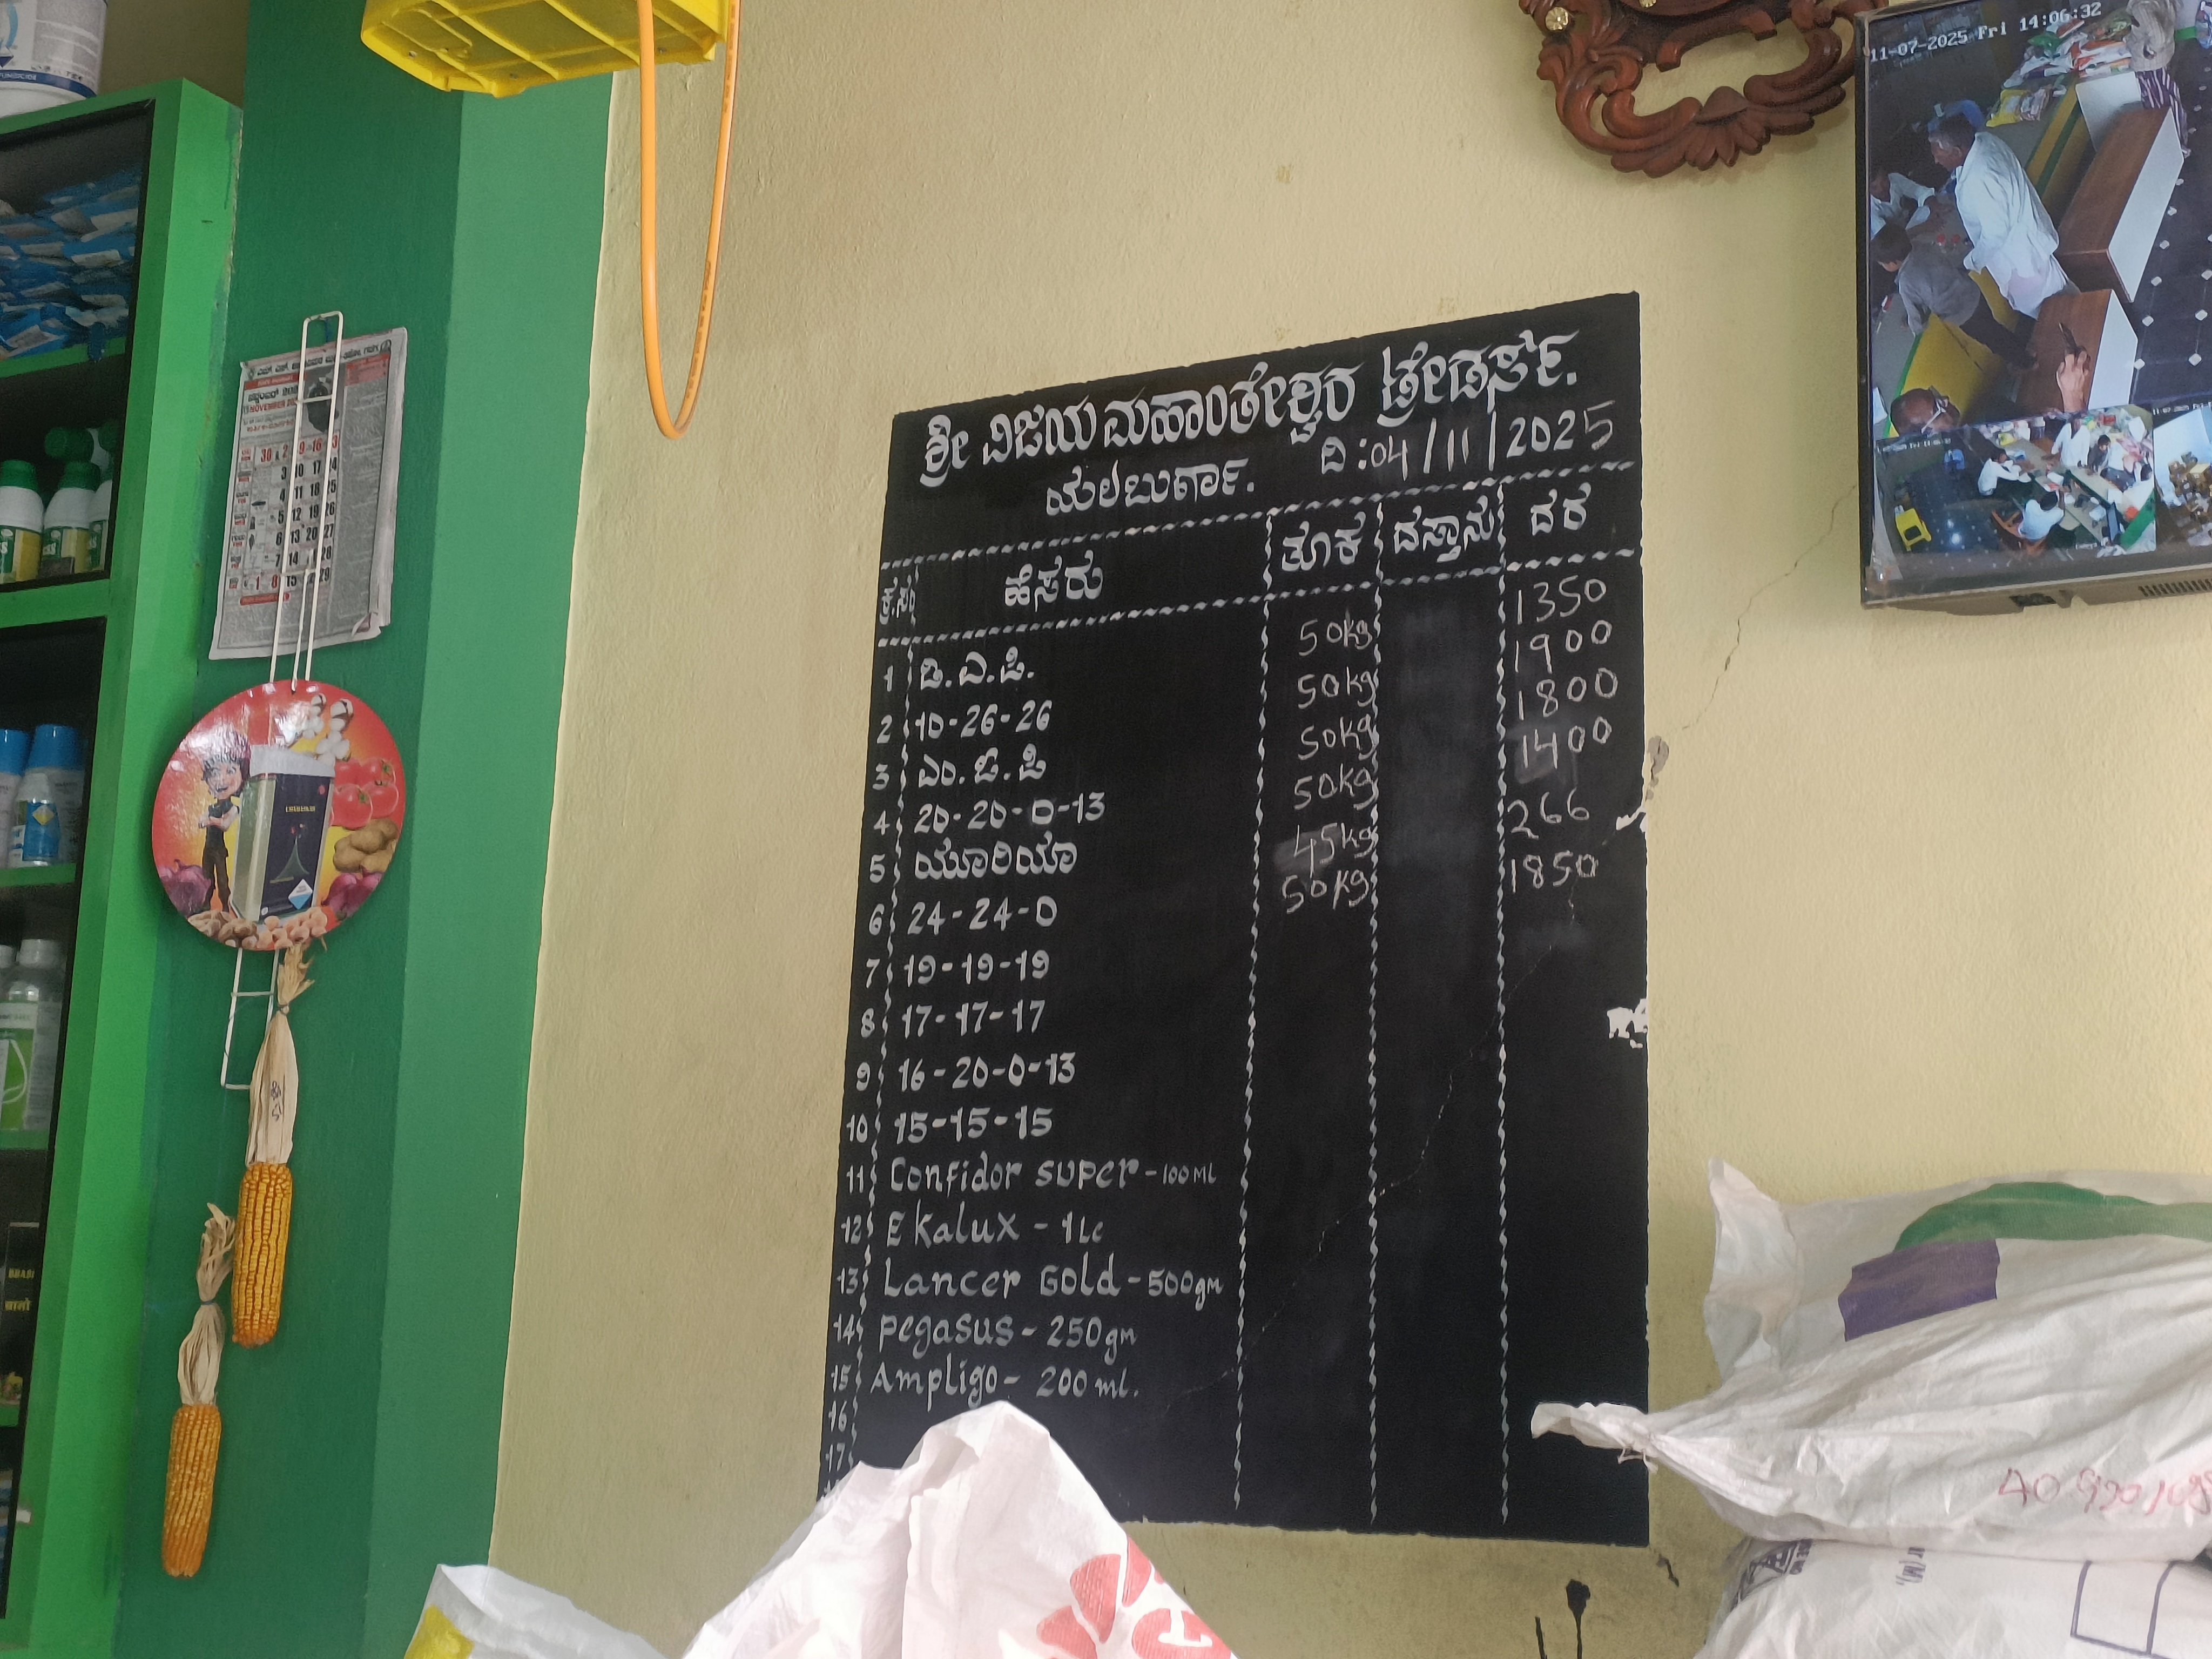 11-07-2025 Fri 14:06:32
ಶ್ರೀ ವಿಜಯಮಹಾಂತೇಶ್ವರ ಟ್ರೇಡರ್ಸ್.
ಯಲಬುರ್ಗಾ. ದಿ:04/11/2025
ಕ್ರ.ಸಂ ಹೆಸರು ತೂಕ ದಾಸ್ತಾನು ದರ
1 ಡಿ.ಎ.ಪಿ. 50kg 1350
2 10-26-26 50kg 1900
3 ಎಂ.ಓ.ಪಿ 50kg 1800
4 20-20-0-13 50kg 1400
5 ಯೂರಿಯಾ 45kg 266
6 24-24-0 50kg 1850
7 19-19-19
8 17-17-17
9 16-20-0-13
10 15-15-15
11 Confidor super-100ml
12 Ekalux - 1Lt
13 Lancer Gold-500gm
14 Pegasus- 250gm
15 Ampligo- 200ml.
16
17
NOVEMBER
30 2 9 16
3 10 17 24
4 11 18 25
5 12 19 26
6 13 20 27
7 14 28
1 8 15 29